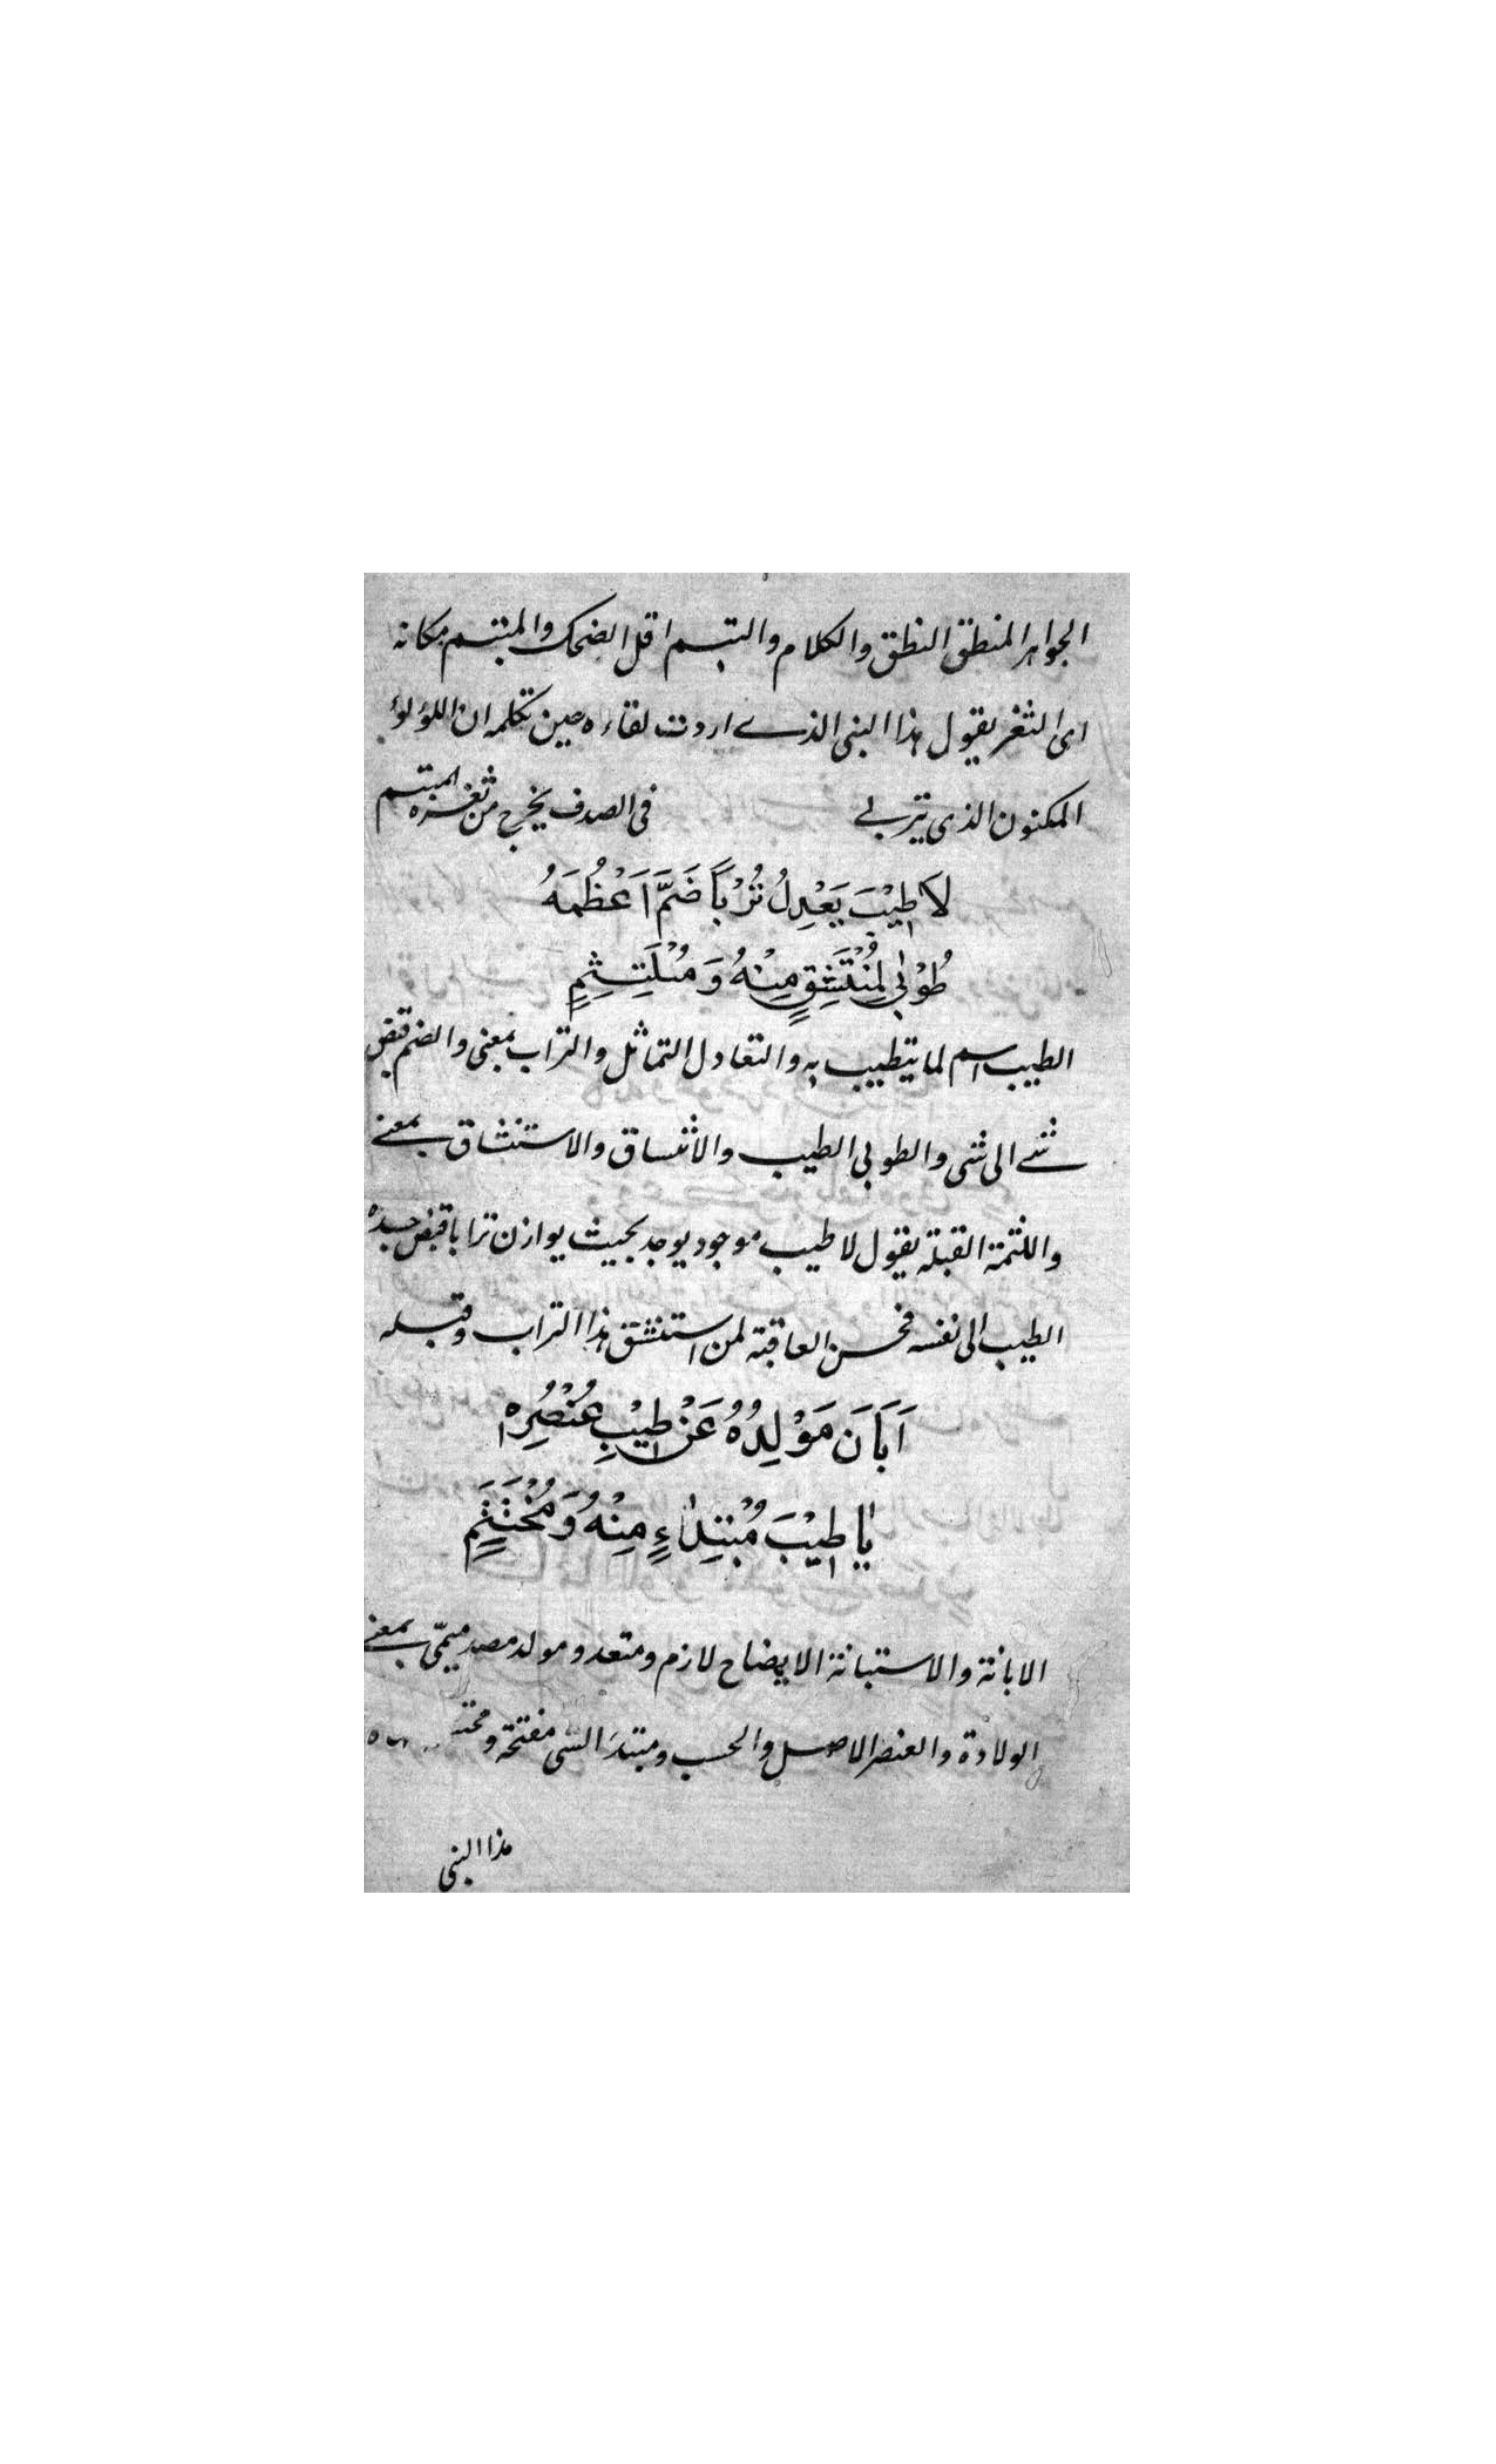 الجواهر المنطق النطق والكلام والتبسم اقل الضحك والمبتسم مكانه
اى الثغر يقول هذا النبى الذى اردت لقاءه حين تكلمه ان اللؤلؤ
المكنون الذى يتربى فى الصدف يخرج من ثغره المبتسم
لَا طِيْبَ يَعْدِلُ تُرْبًا ضَمَّ اَعْظُمَهُ
طُوْبٰى لِمُنْتَشِقٍ مِنْهُ وَ مُلْتَثِمٍ
الطيب اسم لما يتطيب به والتعادل التماثل والتراب بمعنى والضم قبض
شئ الى شى والطوبى الطيب والانتساق والاستنشاق بمعنى
واللثمة القبلة يقول لا طيب موجود يوجد بحيث يوازن ترابا قبض جسده
الطيب الى نفسه فحسن العاقبة لمن استنشق هذا التراب وقبله
اَبَانَ مَوْلِدُهُ عَنْ طِيْبِ عُنْصُرِهٖ
يَا طِيْبَ مُبْتَدَاءٍ مِنْهُ وَ مُخْتَتَمٍ
الابانة والاستبانة الايضاح لازم ومتعد و مولد مصدر ميمّى بمعنى
الولادة والعنصر الاصل والحسب ومبتدَا الشى مفتحة و
هذا النبى